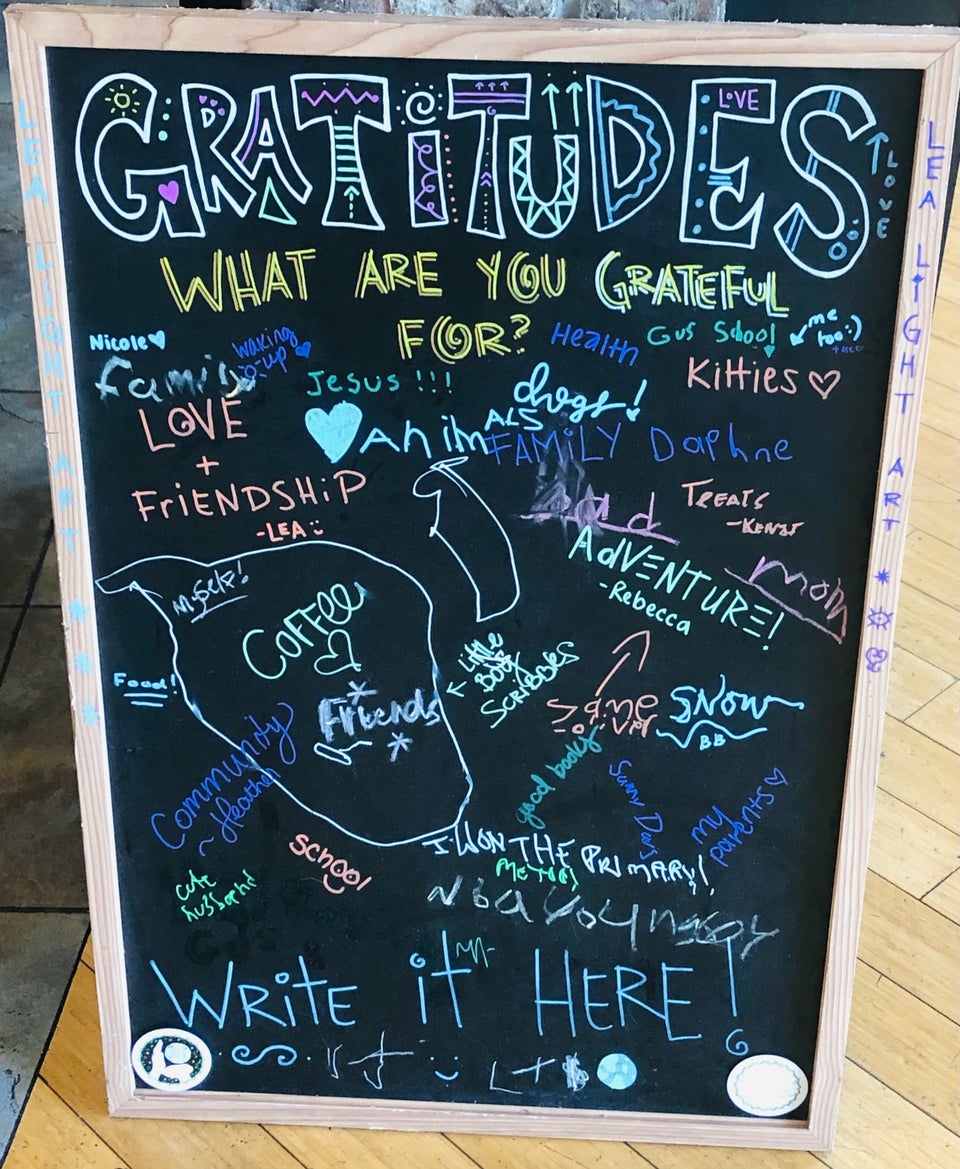 GRATITUDES
LOVE
LOVE
WHAT ARE YOU GRATEFUL
FOR?
Nicole
Family
waking
up
Jesus !!!
Health
Gus School
me
too :)
Kitties
dogs!
LOVE
+
FRiENDSHiP
-LEA
AnimALS
FAMiLY
Daphne
TREATS
ADVENTURE!
-Rebecca
mom
myself!
COFFEE
Food!
Friends
Little
Boy
SCRiBBLES
Same
SNOW
BB
Community
~ Heather
good books
my
parents
I WON THE PRIMARY!
school
cute
husband
WRitE it HERE!
LEA LiGHT ART
LEA LiGHT ART